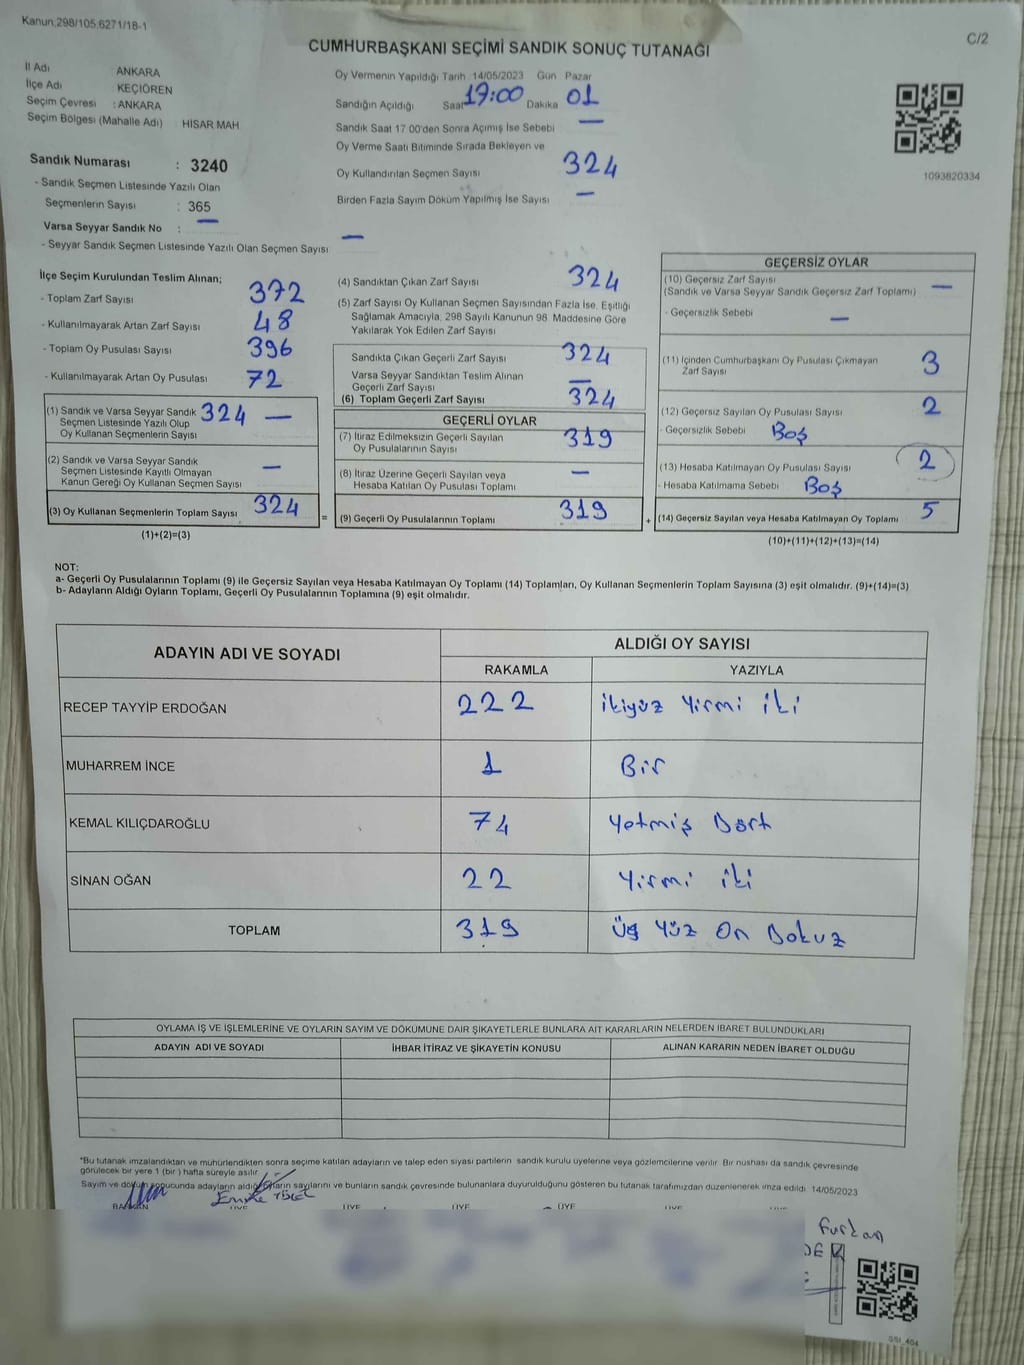 Kanun,298/105,6271/18-1
C/2
CUMHURBAŞKANI SEÇİMİ SANDIK SONUÇ TUTANAĞI
İl Adı ANKARA
İlçe Adı KEÇİÖREN
Seçim Çevresi : ANKARA
Seçim Bölgesi (Mahalle Adı) HİSAR MAH
Sandık Numarası : 3240
- Sandık Seçmen Listesinde Yazılı Olan
Seçmenlerin Sayısı : 365
Varsa Seyyar Sandık No : —
- Seyyar Sandık Seçmen Listesinde Yazılı Olan Seçmen Sayısı —
Oy Vermenin Yapıldığı Tarih 14/05/2023 Gün Pazar
Sandığın Açıldığı Saat 17:00 Dakika 01
Sandık Saat 17 00'den Sonra Açımış İse Sebebi —
Oy Verme Saati Bitiminde Sırada Bekleyen ve
Oy Kullandırılan Seçmen Sayısı 324
Birden Fazla Sayım Döküm Yapılmış İse Sayısı —
1093820334
İlçe Seçim Kurulundan Teslim Alınan;
- Toplam Zarf Sayısı 372
- Kullanılmayarak Artan Zarf Sayısı 48
- Toplam Oy Pusulası Sayısı 396
- Kullanılmayarak Artan Oy Pusulası 72
(1) Sandık ve Varsa Seyyar Sandık 324 —
Seçmen Listesinde Yazılı Olup
Oy Kullanan Seçmenlerin Sayısı
(2) Sandık ve Varsa Seyyar Sandık
Seçmen Listesinde Kayıtlı Olmayan —
Kanun Gereği Oy Kullanan Seçmen Sayısı
(3) Oy Kullanan Seçmenlerin Toplam Sayısı 324 =
(1)+(2)=(3)
(4) Sandıktan Çıkan Zarf Sayısı 324
(5) Zarf Sayısı Oy Kullanan Seçmen Sayısından Fazla İse, Eşitliği
Sağlamak Amacıyla, 298 Sayılı Kanunun 98. Maddesine Göre
Yakılarak Yok Edilen Zarf Sayısı
Sandıkta Çıkan Geçerli Zarf Sayısı 324
Varsa Seyyar Sandıktan Teslim Alınan
Geçerli Zarf Sayısı —
(6) Toplam Geçerli Zarf Sayısı 324
GEÇERLİ OYLAR
(7) İtiraz Edilmeksizin Geçerli Sayılan 319
Oy Pusulalarının Sayısı
(8) İtiraz Üzerine Geçerli Sayılan veya —
Hesaba Katılan Oy Pusulası Toplamı
(9) Geçerli Oy Pusulalarının Toplamı 319 +
GEÇERSİZ OYLAR
(10) Geçersiz Zarf Sayısı
(Sandık ve Varsa Seyyar Sandık Geçersiz Zarf Toplamı) —
- Geçersizlik Sebebi —
(11) İçinden Cumhurbaşkanı Oy Pusulası Çıkmayan
Zarf Sayısı 3
(12) Geçersiz Sayılan Oy Pusulası Sayısı 2
- Geçersizlik Sebebi Boş
(13) Hesaba Katılmayan Oy Pusulası Sayısı 2
- Hesaba Katılmama Sebebi Boş
(14) Geçersiz Sayılan veya Hesaba Katılmayan Oy Toplamı 5
(10)+(11)+(12)+(13)=(14)
NOT:
a- Geçerli Oy Pusulalarının Toplamı (9) ile Geçersiz Sayılan veya Hesaba Katılmayan Oy Toplamı (14) Toplamları, Oy Kullanan Seçmenlerin Toplam Sayısına (3) eşit olmalıdır. (9)+(14)=(3)
b- Adayların Aldığı Oyların Toplamı, Geçerli Oy Pusulalarının Toplamına (9) eşit olmalıdır.
ADAYIN ADI VE SOYADI ALDIĞI OY SAYISI
RAKAMLA YAZIYLA
RECEP TAYYİP ERDOĞAN 222 ikiyüz Yirmi iki
MUHARREM İNCE 1 Bir
KEMAL KILIÇDAROĞLU 74 Yetmiş Dört
SİNAN OĞAN 22 Yirmi iki
TOPLAM 319 Üç Yüz On Dokuz
OYLAMA İŞ VE İŞLEMLERİNE VE OYLARIN SAYIM VE DÖKÜMÜNE DAİR ŞİKAYETLERLE BUNLARA AİT KARARLARIN NELERDEN İBARET BULUNDUKLARI
ADAYIN ADI VE SOYADI İHBAR İTİRAZ VE ŞİKAYETİN KONUSU ALINAN KARARIN NEDEN İBARET OLDUĞU
*Bu tutanak imzalandıktan ve mühürlendikten sonra seçime katılan adayların ve talep eden siyasi partilerin sandık kurulu üyelerine veya gözlemcilerine verilir. Bir nüshası da sandık çevresinde
görülecek bir yere 1 (bir ) hafta süreyle asılır.
Sayım ve döküm sonucunda adayların aldığı oyların sayılarını ve bunların sandık çevresinde bulunanlara duyurulduğunu gösteren bu tutanak tarafımızdan düzenlenerek imza edildi. 14/05/2023
BAŞKAN ÜYE ÜYE ÜYE ÜYE
Furkan